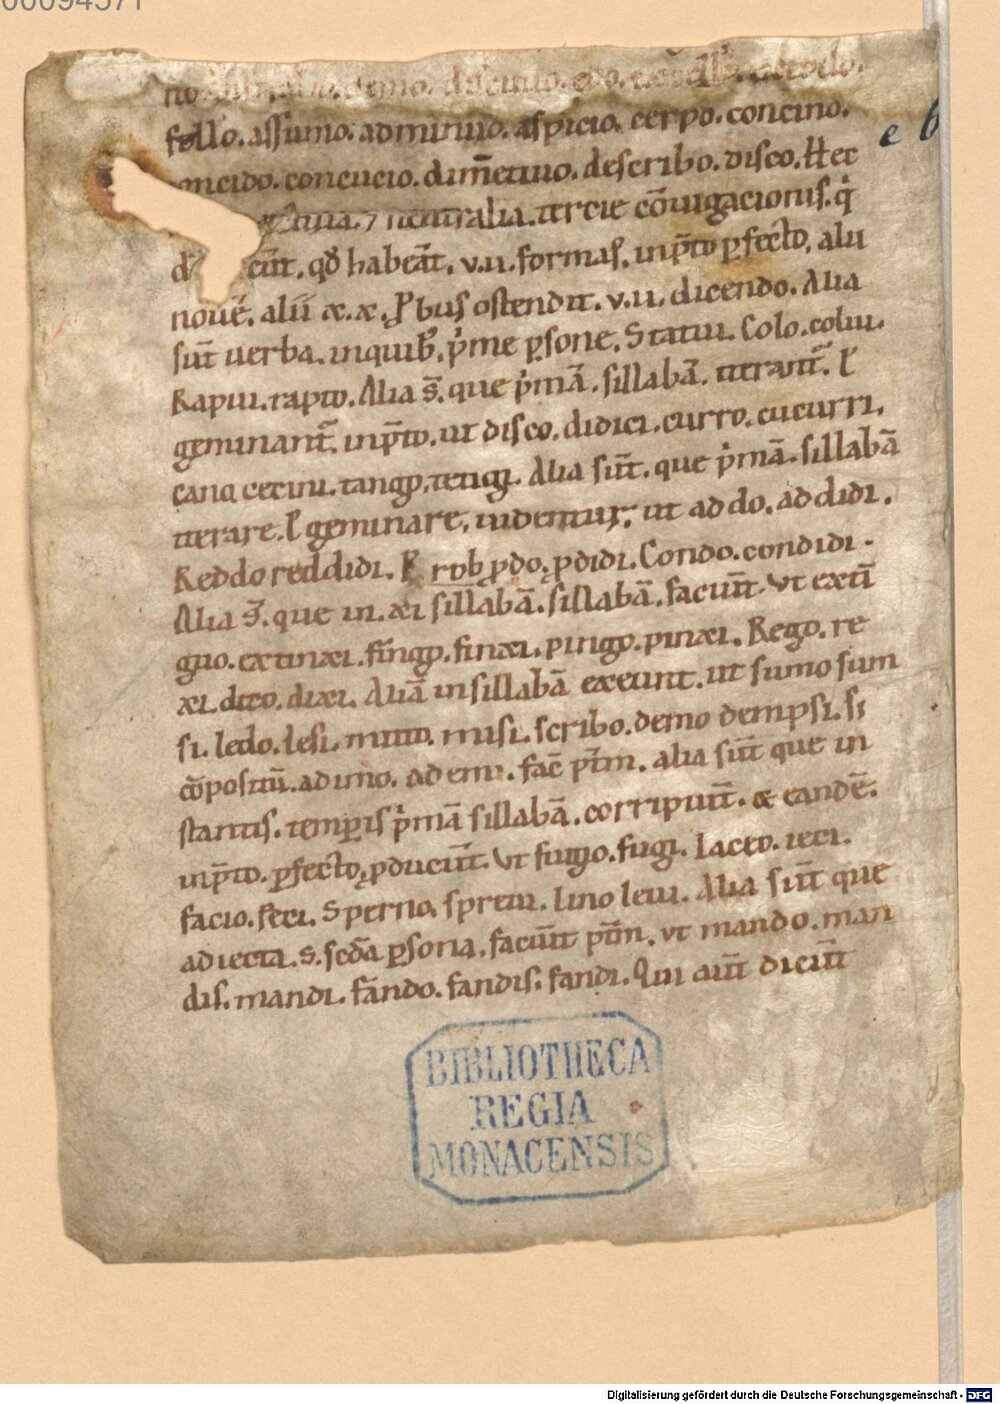 00094571
demo.
follo. assumo. adminuo. aspicio. cerpo. concino.
e b
oncido. concucio. dim̄etiuo. describo. disco. Hec
⁊ neutralia. tercie cōiugacionis. q̇
cūt. qđ habeāt. v.ii. formas. inp̄to ꝑfecto, alii
nouē. alii x.x. p̱bus ostendit. v.ii. dicendo. Alia
sūt uerba. inquib; p̍me ꝑsone. Statui. Colo. colui.
Rapui. rapio. Alia s̄. que p̍mā. sillabā. iterant̄. ł
geminant̄. inp̄to. ut disco. didici. curro. cucurri.
cano cecini. tango. tetigi. Alia sūt. que p̍mā. sillabā
iterare. ł geminare. uidentur. ut addo. addidi.
Reddo reddidi. ꝓdo. ꝓdidi. Condo. condidi.
Alia s̄. que in. xi sillabā. sillabā. faciūt. Vt exti
guo. extinxi. fingo. finxi. pingo. pinxi. Rego. re
xi. dico. dixi. Aliā insillabā exeunt. ut sumo sum
si. ledo. lesi. mitto. misi. scribo. demo dempsi. si
cōpositū. adimo. ademi. fac̄ p̄tm. alia sūt que in
stantis. temꝑis p̍mā sillabā. corripiūt. & eandē.
inp̄to. ꝑfecto, ꝓducūt. Vt fugio. fugi. Iaceo. ieci.
facio. feci. Sperno, spreui. lino leui. Alia sūt que
adiecta. s. scd̄a ꝑsona. faciūt p̄tm. vt mando. man
dis. mandi. fando. fandis. fandi. Qui aiūt dicūt
BIBLIOTHECA
REGIA
MONACENSIS
Digitalisierung gefördert durch die Deutsche Forschungsgemeinschaft - DFG